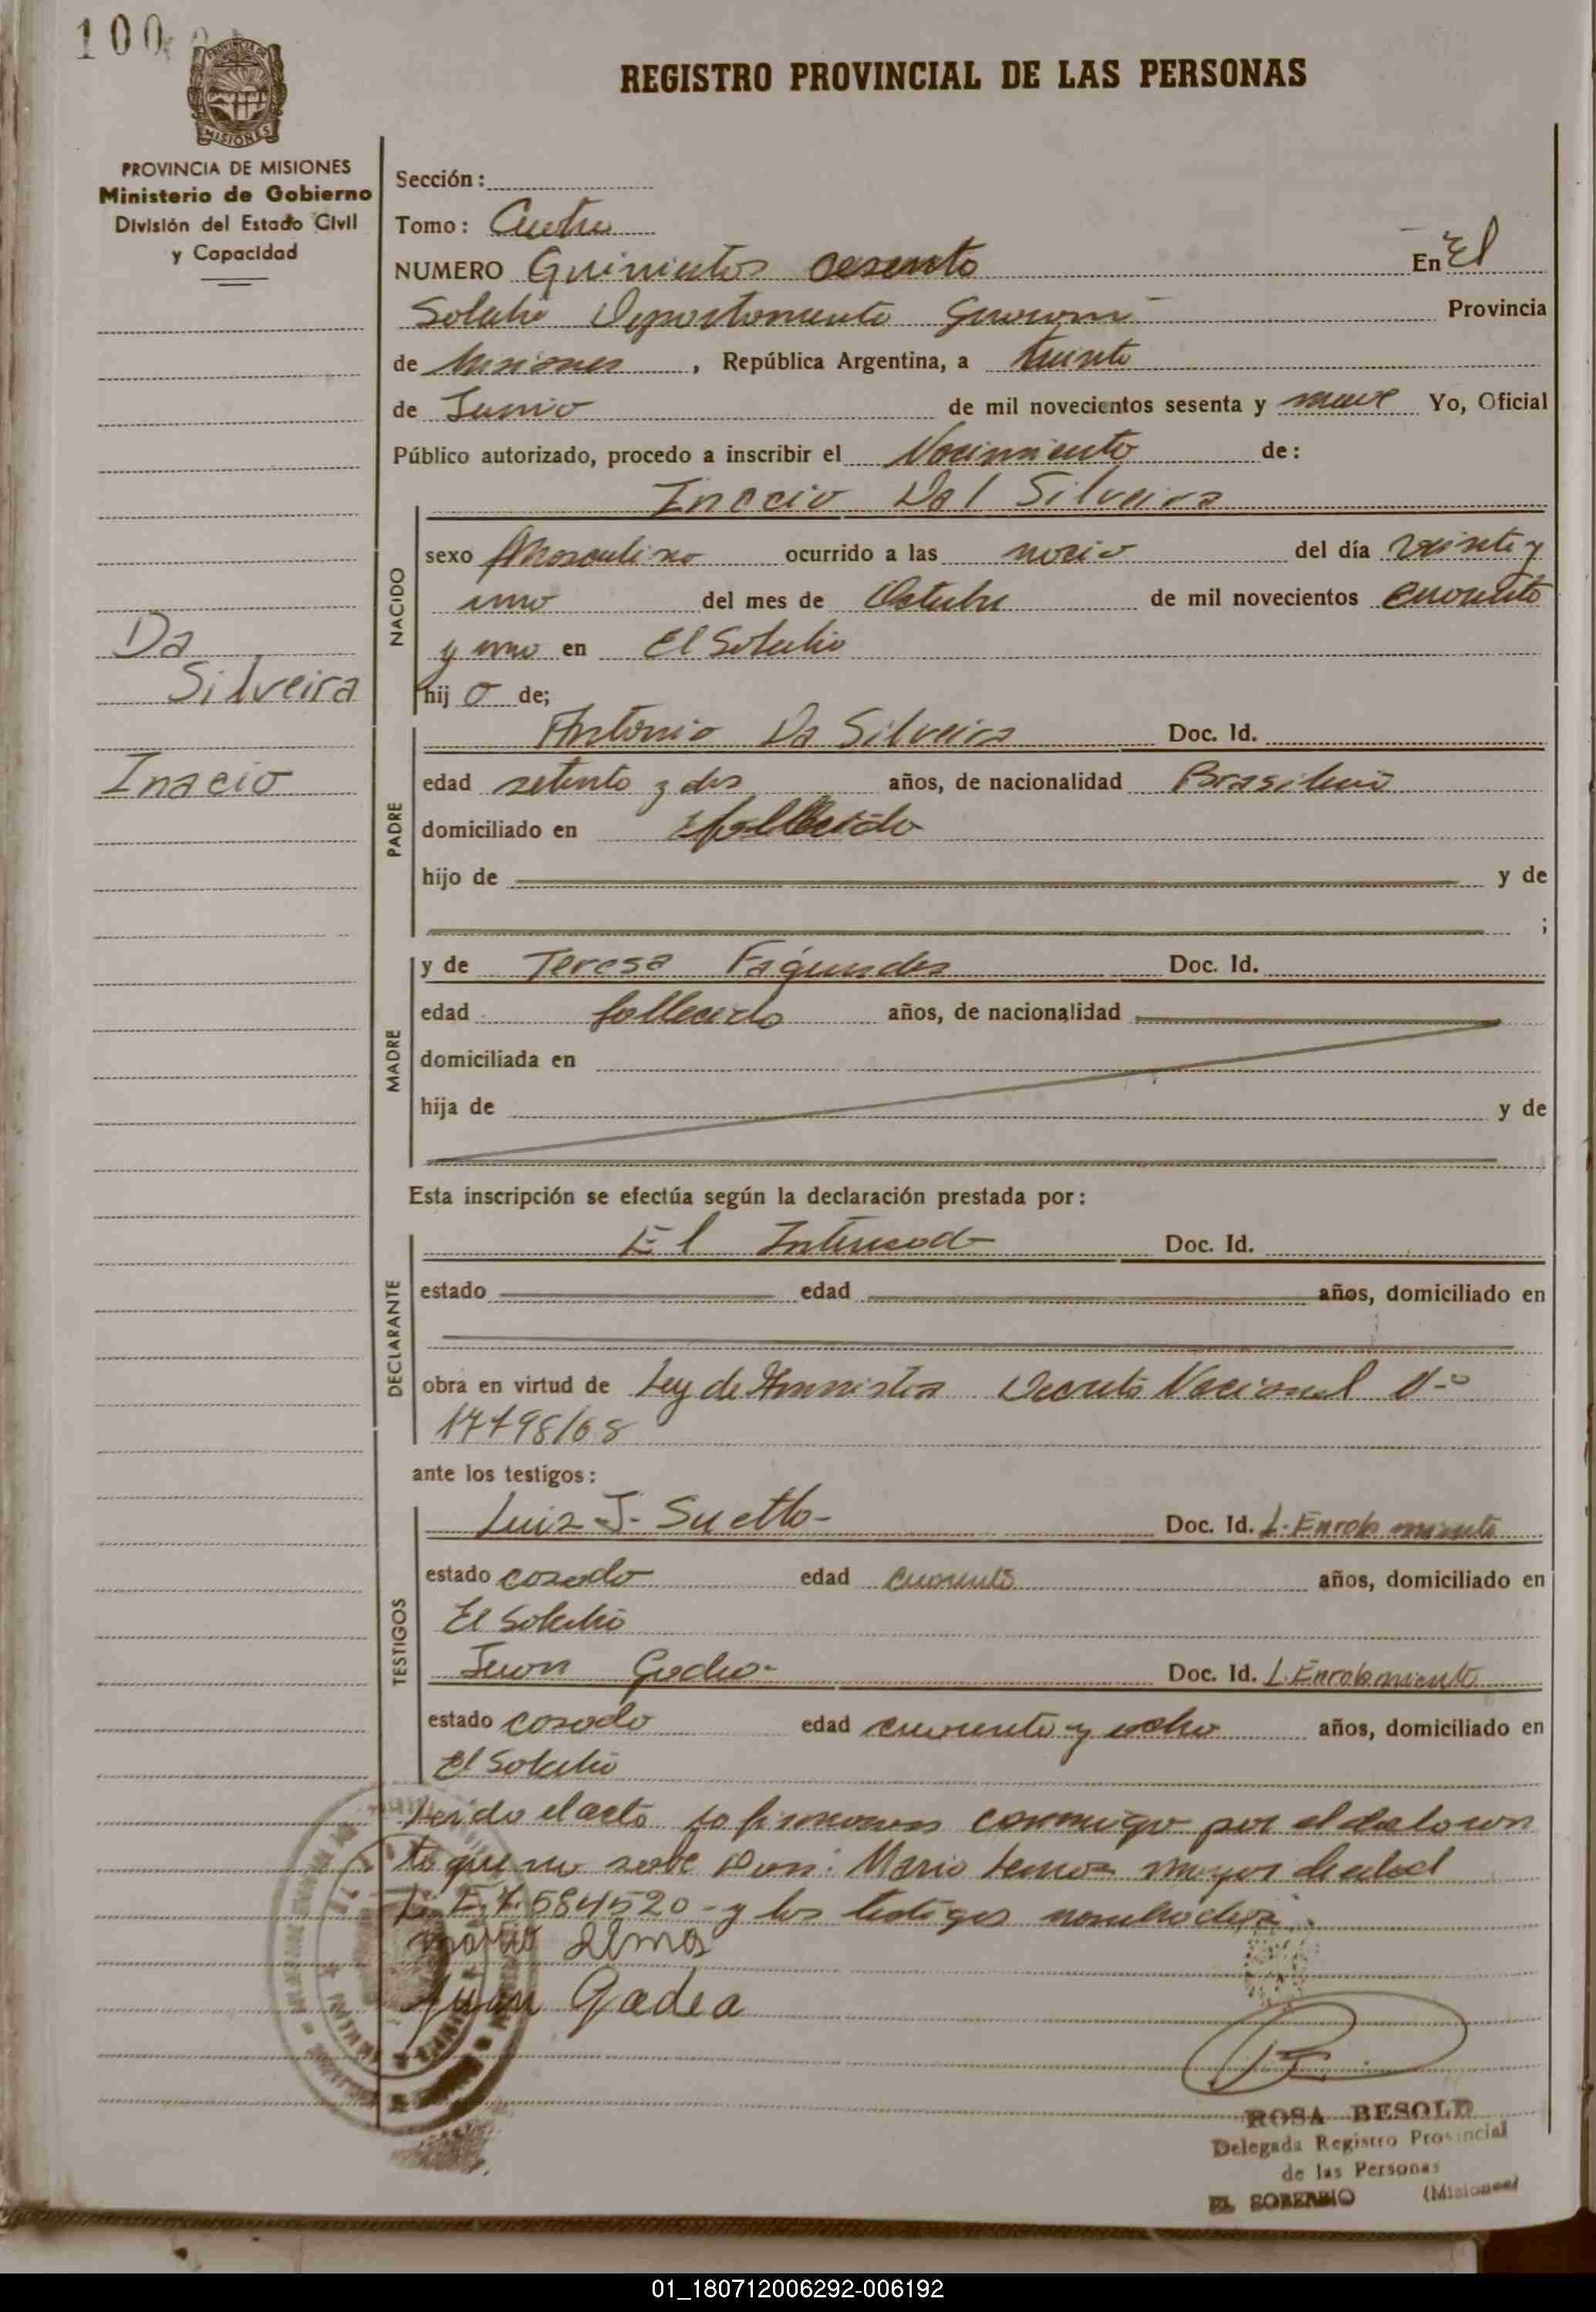 100
REGISTRO PROVINCIAL DE LAS PERSONAS
PROVINCIA DE MISIONES
MISIONES
Ministerio de Gobierno
División del Estado Civil
y Capacidad
Sección:
Tomo: Cuatro
NUMERO Quinientos sesenta En El
Soberbio Departamento Guaraní Provincia
de Misiones, República Argentina, a treinta
de Junio de mil novecientos sesenta y nueve Yo, Oficial
Público autorizado, procedo a inscribir el Nacimiento de:
Inacio Da Silveira
NACIDO
sexo Masculino ocurrido a las del día veinte y
uno del mes de Octubre de mil novecientos cuarenta
y uno en El Soberbio
hij o de;
Da
Silveira
Inacio
PADRE
Antonio Da Silveira Doc. Id.
edad setenta y dos años, de nacionalidad Brasilera
domiciliado en fallecido
hijo de y de
;
MADRE
y de Teresa Fagundes Doc. Id.
edad fallecida años, de nacionalidad
domiciliada en
hija de y de
Esta inscripción se efectúa según la declaración prestada por:
DECLARANTE
El Interesado Doc. Id.
estado edad años, domiciliado en
obra en virtud de Ley de Amnistia Decreto Nacional Nº
ante los testigos:
TESTIGOS
Luis J. Suetto- Doc. Id. L. Enrolamiento
estado casado edad cuarenta años, domiciliado en
El Soberbio
Juan Gadea- Doc. Id. L. Enrolamiento
estado casado edad cuarenta y ocho años, domiciliado en
El Soberbio
Leida el acta la firmaron conmigo por el declaran
te que no sabe Don: Mario Lemos mayor de edad
584520- y los testigos nombrados.
Juan Gadea
ROSA BESOLD
Delegada Registro Provincial
de las Personas
EL SOBERBIO (Misiones)
01_180712006292-006192